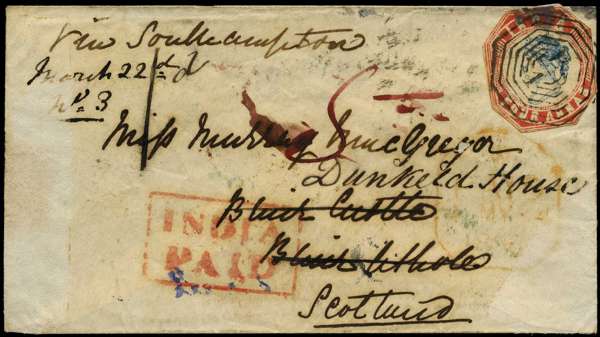 Via Southampton
March 22nd
No. 3
FOUR ANNAS
Miss Murray MacGregor
Dunkeld House
Blair Castle
Blair Athole
INDIA
PAID
Scotland